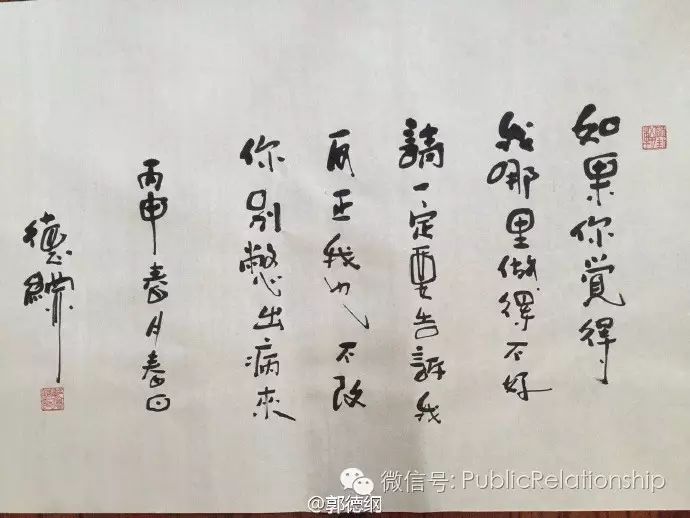 如果你覺得
我哪里做得不好
請一定要告訴我
反正我也不改
你别憋出病來
丙申春月春日
德綱
微信号: PublicRelationship
@郭德纲